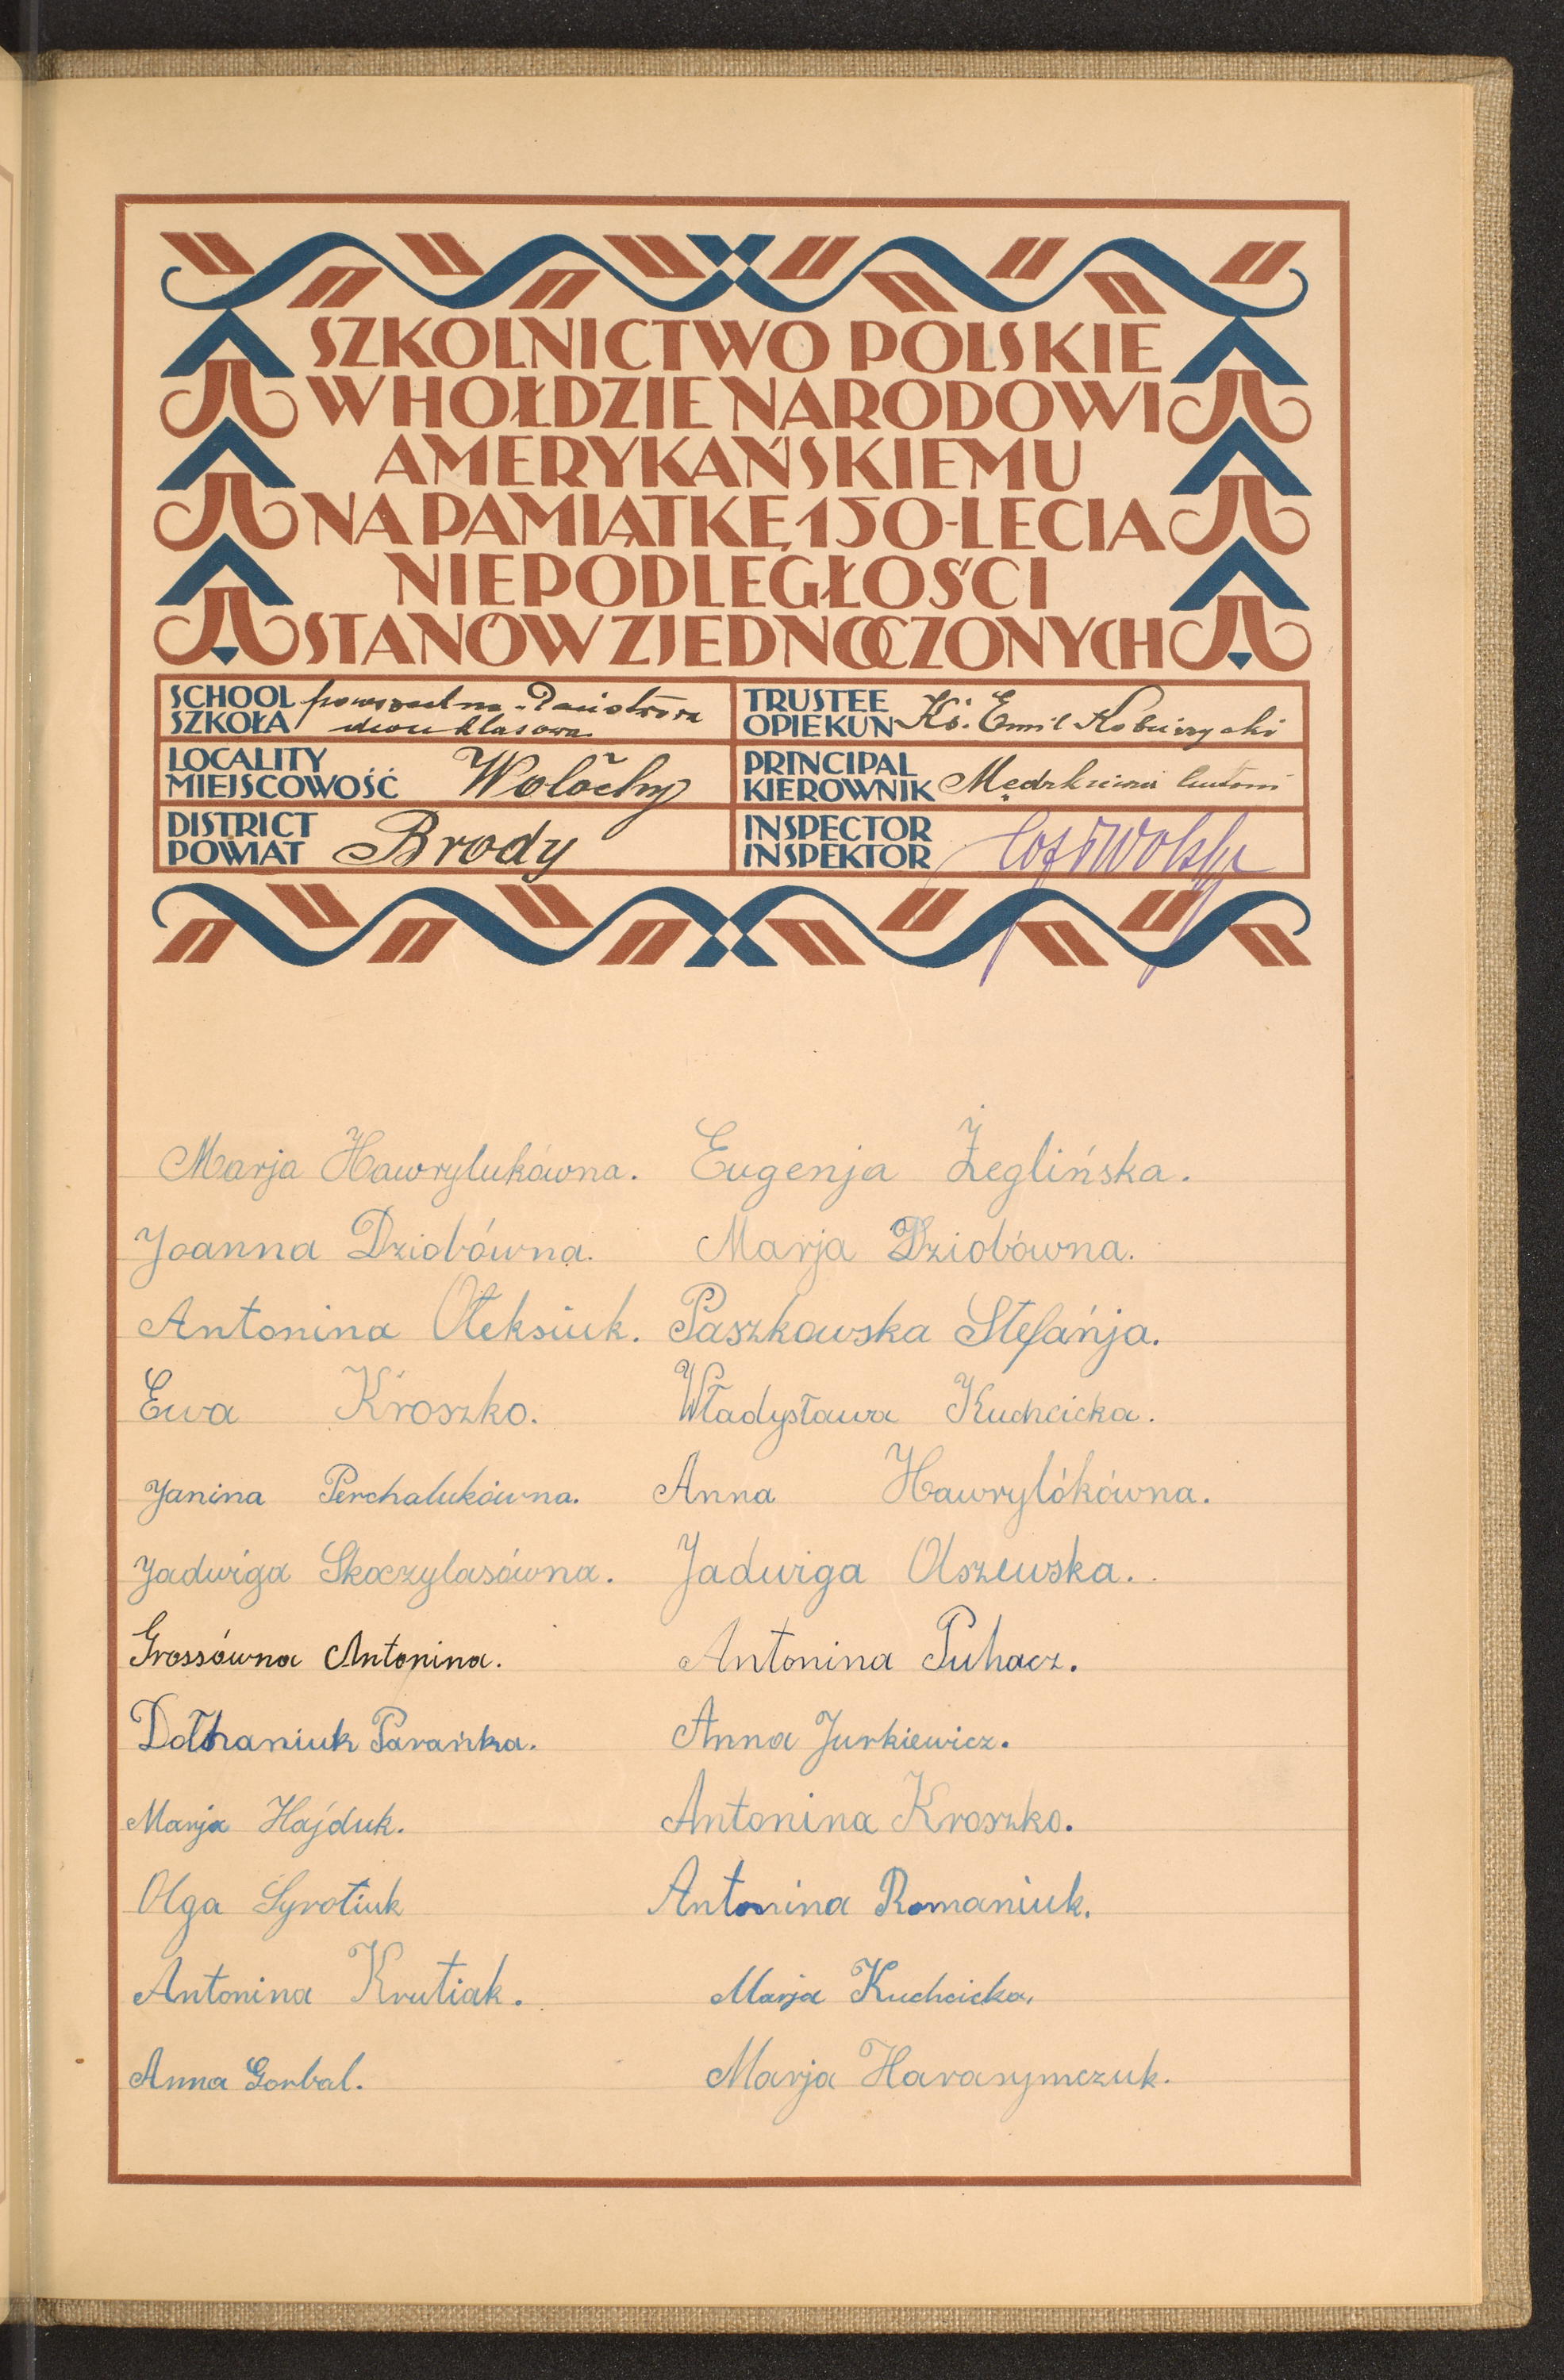 SZKOLNICTWO POLSKIE
W HOŁDZIE NARODOWI
AMERYKAŃSKIEMU
NA PAMIĄTKĘ 150-LECIA
NIEPODLEGŁOŚCI
STANÓW ZJEDNOCZONYCH
SCHOOL
SZKOŁA
dwu klasowa
TRUSTEE
OPIEKUN
Ks. Emil Kobierzycki
LOCALITY
MIEJSCOWOŚĆ
Wołochy
PRINCIPAL
KIEROWNIK
DISTRICT
POWIAT
Brody
INSPECTOR
INSPEKTOR
Marja Hawrylukówna. Eugenja Żeglińska.
Joanna Dziobówna. Marja Dziobówna.
Antonina Ołeksiuk. Paszkowska Stefańja.
Ewa Kroszko. Władysława Kuchcicka.
Janina Perchalukówna. Anna Hawrylókówna.
Jadwiga Skoczylasówna. Jadwiga Olszewska.
Grossówna Antonina. Antonina Puhacz.
Dołhaniuk Parańka. Anna Jurkiewicz.
Marja Hajduk. Antonina Kroszko.
Olga Syrotiuk Antonina Romaniuk.
Antonina Krutiak. Marja Kuchcicka.
Anna Gorbal. Marja Harasymczuk.